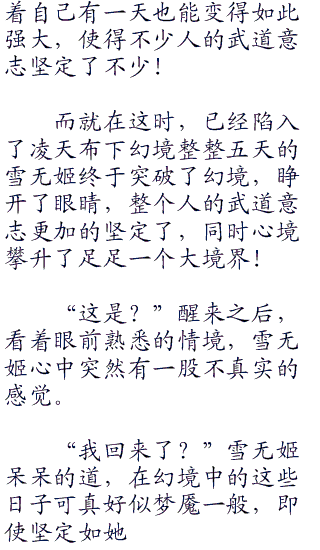 着自己有一天也能变得如此
强大，使得不少人的武道意
志坚定了不少！
而就在这时，已经陷入
了凌天布下幻境整整五天的
雪无姬终于突破了幻境，睁
开了眼睛，整个人的武道意
志更加的坚定了，同时心境
攀升了足足一个大境界！
“这是？”醒来之后，
看着眼前熟悉的情境，雪无
姬心中突然有一股不真实的
感觉。
“我回来了？”雪无姬
呆呆的道，在幻境中的这些
日子可真好似梦魇一般，即
使坚定如她